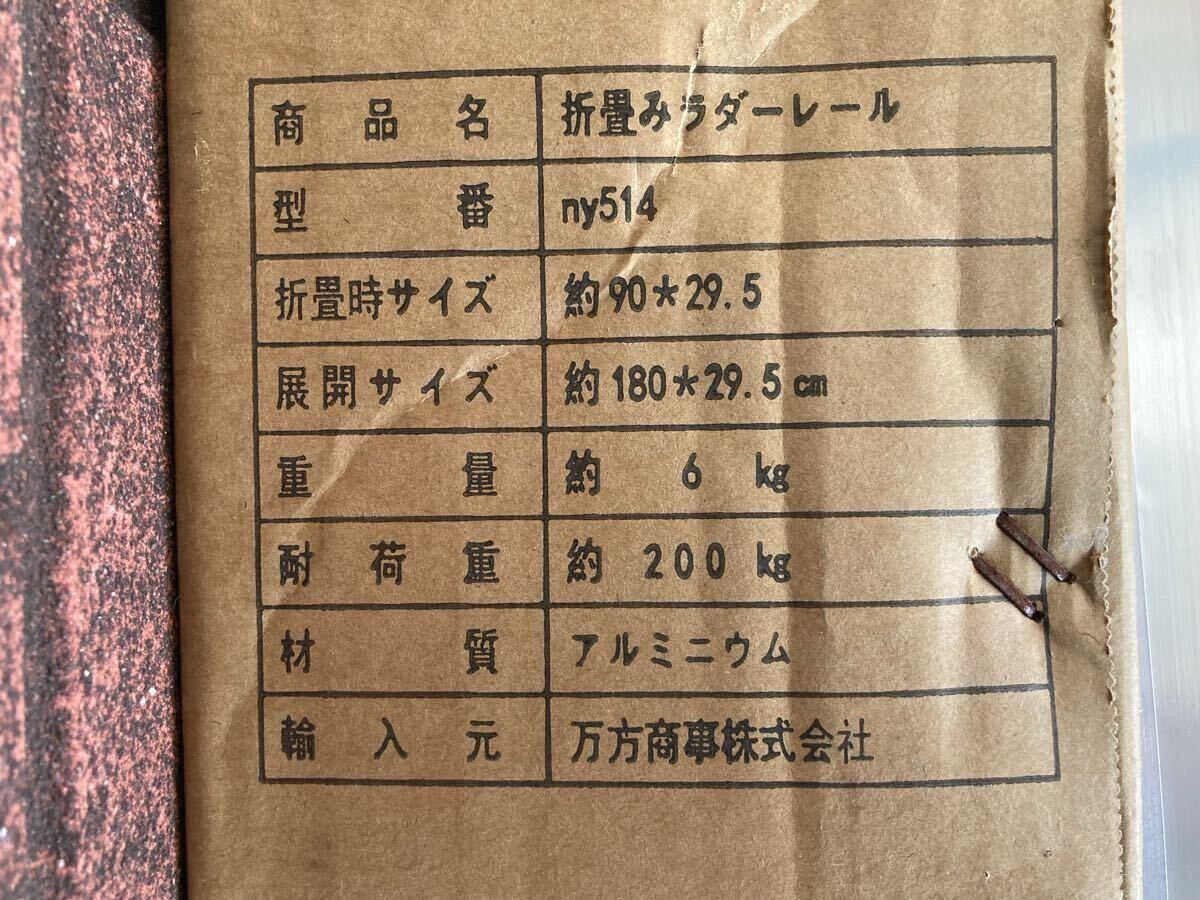 商品名 折畳みラダーレール
型番 ny514
折畳時サイズ 約90*29.5
展開サイズ 約180*29.5㎝
重量 約 6 kg
耐荷重 約 200 kg
材質 アルミニウム
輸入元 万方商事株式会社